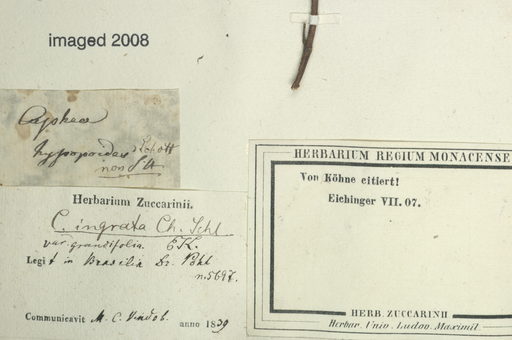 imaged 2008
Cuphea
Schott
non St
Herbarium Zuccarinii.
C. ingrata Ch. Schl.
var. grandifolia. EK.
Legit in Brasilia Dr. Pohl
n. 5697.
Communicavit M. C. Vindob. anno 1839
HERBARIUM REGIUM MONACENSE
Von Köhne citiert!
Eichinger VII. 07.
HERB. ZUCCARINII
Herbar. Univ. Ludov. Maximil.